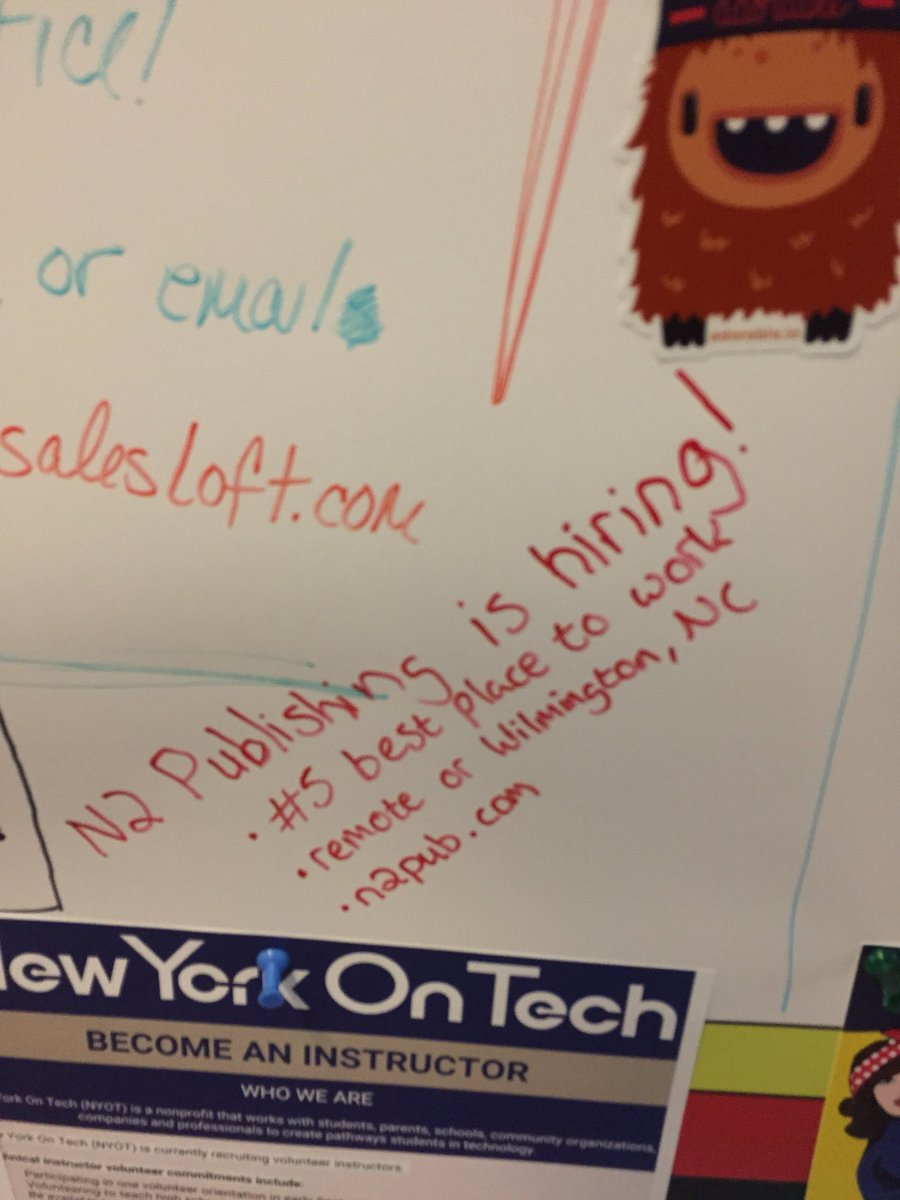 or email
salesloft.com
N2 Publishing is hiring!
• #5 best place to work
• remote or Wilmington, NC
• n2pub.com
New York On Tech
BECOME AN INSTRUCTOR
WHO WE ARE
York On Tech (NYOT) is a nonprofit that works with students, parents, schools, community organizations,
companies and professionals to create pathways students in technology.
York On Tech (NYOT) is currently recruiting volunteer instructors
instructor volunteer commitments include:
Participating in one volunteer orientation in
Volunteering to teach high